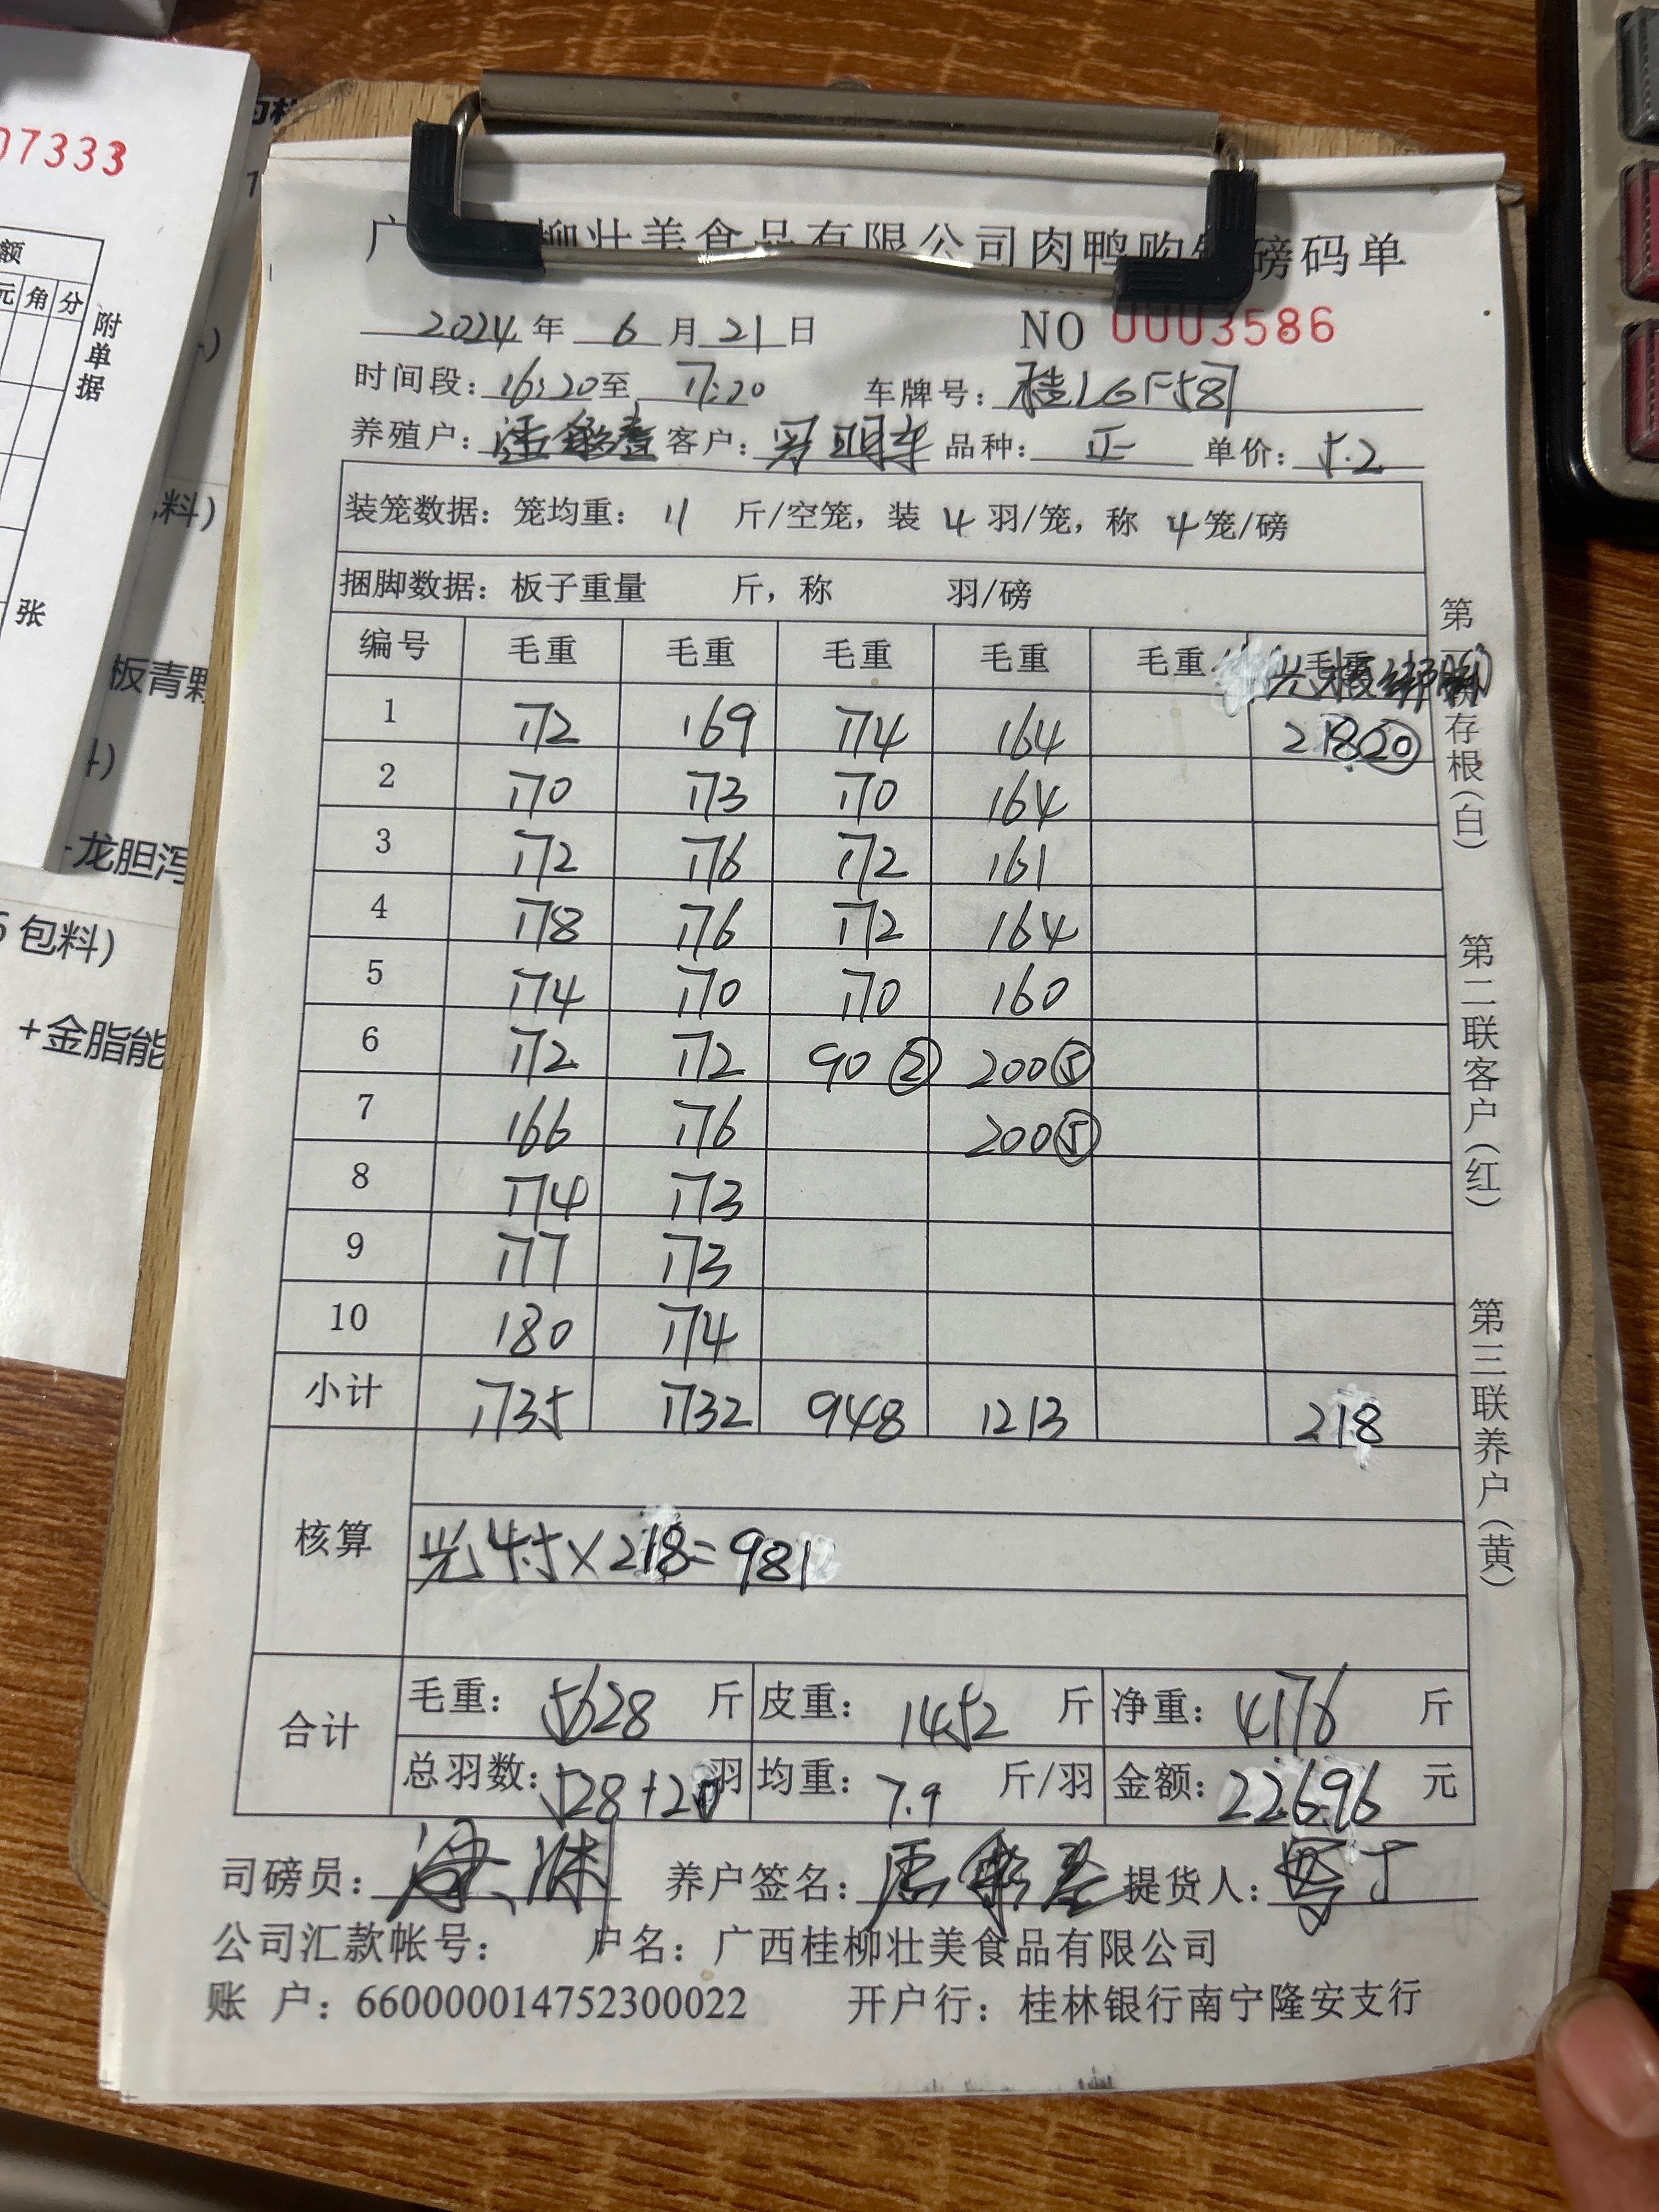 07333
额
元 角 分
附单据
张
料)
板青
龙胆泻
6包料)
+金脂能
广 柳壮美食品有限公司肉鸭购 磅码单
2024年 6月21日 NO 0003586
时间段: 16:20至 17:20 车牌号: 桂LGF587
养殖户: 客户: 品种: 正 单价: 5.2
装笼数据: 笼均重: 11 斤/空笼, 装 4 羽/笼, 称 4 笼/磅
捆脚数据: 板子重量 斤, 称 羽/磅
编号 毛重 毛重 毛重 毛重 毛重 毛重
1 172 169 174 164 218 ⑳
2 170 173 170 164
3 172 176 172 161
4 178 176 172 164
5 174 170 170 160
6 172 172 90 ② 200 ⑤
7 166 176 200 ⑤
8 174 173
9 177 173
10 180 174
小计 1735 1732 948 1213 218
核算
光 4.5×218=981
合计 毛重: 5628 斤 皮重: 1452 斤 净重: 4176 斤
总羽数: 528+20 羽 均重: 7.9 斤/羽 金额: 22696 元
司磅员: 养户签名: 提货人:
公司汇款帐号: 户名: 广西桂柳壮美食品有限公司
账 户: 660000014752300022 开户行: 桂林银行南宁隆安支行
第 存根(白)
第二联客户(红)
第三联养户(黄)